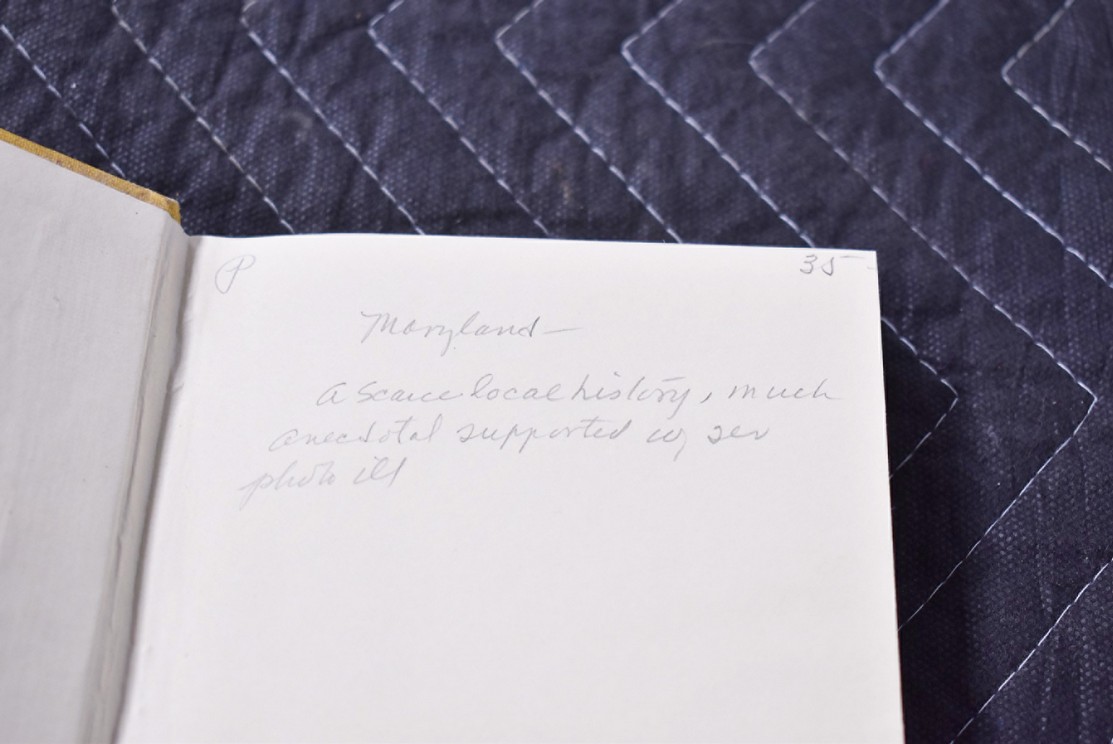 P 35–
Maryland—
a scarce local history, much
anecdotal supported w/ sev
photo ill